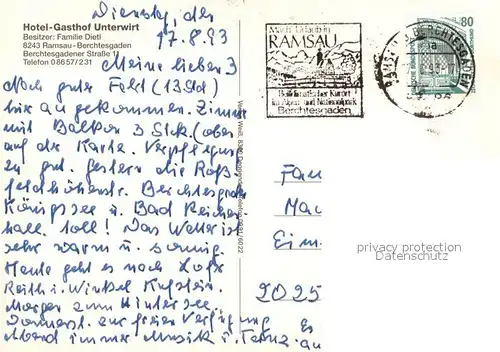 Hotel-Gasthof Unterwirt
Besitzer: Familie Dietl
8243 Ramsau-Berchtesgaden
Berchtesgadener Straße 11
Telefon 08657/231
Dienstag, des
17.8.93
Meine lieben 3
Nach guter Fahrt (13 Std)
hier angekommen. Zimmer
mit Balkon 3 Stck. (oben
auf der Karte. Verpflegung
zu gut. gestern die Roß-
feldhöhenstr. Berchtesgaden
Königssee u. Bad Reichen
hall. toll! Das Wetter ist
sehr warm u. sonnig.
Heute geht es nach
Reith i. Winkel Kufstein.
Morgen zum Hintersee
Donnerst. zur freien Verfügung
Abend immer Musik u. Tanz. an
Es
Mach Urlaub in
RAMSAU
Heilklimatischer Kurort
im Alpen- und Nationalpark
Berchtesgaden
RAMSAU B BERCHTESGADEN
80
DEUTSCHE BUNDESPOST
Fam
Mac
Eim
2025
privacy protection
Datenschutz